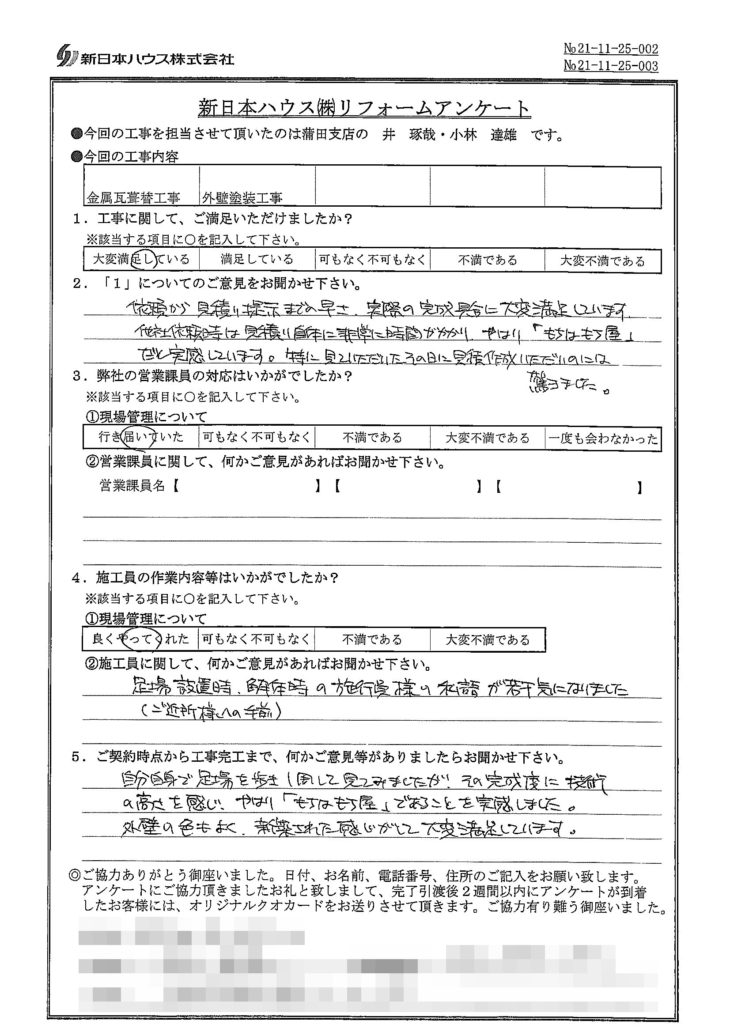 新日本ハウス株式会社
№21-11-25-002
№21-11-25-003
新日本ハウス㈱リフォームアンケート
●今回の工事を担当させて頂いたのは蒲田支店の 井 琢哉・小林 達雄 です。
●今回の工事内容
金属瓦葺替工事 外壁塗装工事
1．工事に関して、ご満足いただけましたか？
※該当する項目に○を記入して下さい。
大変満足している 満足している 可もなく不可もなく 不満である 大変不満である
2．「1」についてのご意見をお聞かせ下さい。
依頼から見積り提示までの早さ、実際の完成具合に大変満足しています
他社依頼時は見積り自体に非常に時間がかかり、やはり「もちはもち屋」
だと実感しています。特に見ていただいたその日に見積作成いただいのには
驚きました。
3．弊社の営業課員の対応はいかがでしたか？
※該当する項目に○を記入して下さい。
①現場管理について
行き届いていた 可もなく不可もなく 不満である 大変不満である 一度も会わなかった
②営業課員に関して、何かご意見があればお聞かせ下さい。
営業課員名【 】【 】【 】
4．施工員の作業内容等はいかがでしたか？
※該当する項目に○を記入して下さい。
①現場管理について
良くやってくれた 可もなく不可もなく 不満である 大変不満である
②施工員に関して、何かご意見があればお聞かせ下さい。
足場設置時、解体時の施行員様の私語が若干気になりました
（ご近所様への手前）
5．ご契約時点から工事完工まで、何かご意見等がありましたらお聞かせ下さい。
自分自身で足場を歩き1周して見てみましたが、その完成度に技術
の高さを感じ、やはり「もちはもち屋」であることを実感しました。
外壁の色もよく、新築された感じがして大変満足しています。
◎ご協力ありがとう御座いました。日付、お名前、電話番号、住所のご記入をお願い致します。
アンケートにご協力頂きましたお礼と致しまして、完了引渡後２週間以内にアンケートが到着
したお客様には、オリジナルクオカードをお送りさせて頂きます。ご協力有り難う御座いました。